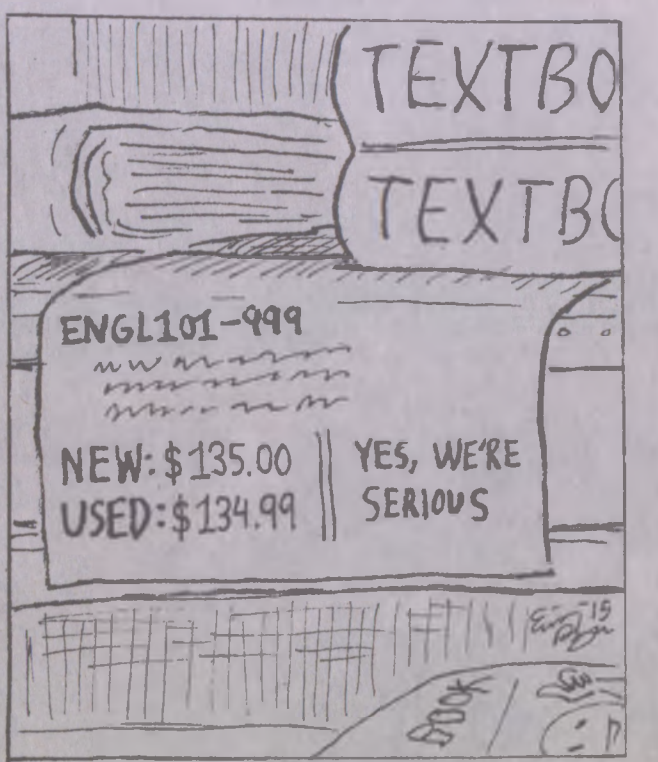 TEXTBO
TEXTBO
ENGL101-999
NEW: $135.00
USED: $134.99
YES, WE'RE
SERIOUS
-15
BOOK